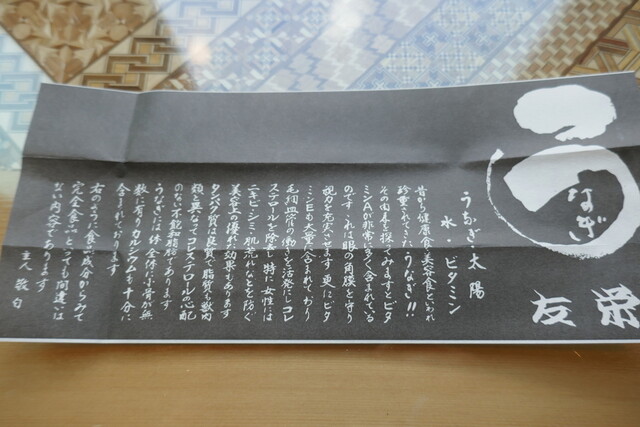 うなぎ
友栄
うなぎ・太陽
水・ビタミン
昔から健康食・美容食といわれ
珍重されてきたうなぎ!!
その内容を探ってみますとビタ
ミンAが非常に多く含まれている
のです これは眼の角膜を守り
視力を充実させます 更にビタ
ミンEも大量に含まれており
毛細血管の働きを活発にしコレ
ステロールを除去し特に女性には
ニキビ・シミ・肌荒れなどを防ぐ
美容上の優れた効果があります
タンパク質は良質で脂肪も獣肉
類と異なってコレステロールの心配
のない不飽和脂肪であります
うなぎには体全体に小骨が無
数に有りカルシウムも十分に
含まれております
右のように食品成分からみて
完全食品といっても間違いは
ない内容であります
主人 敬白